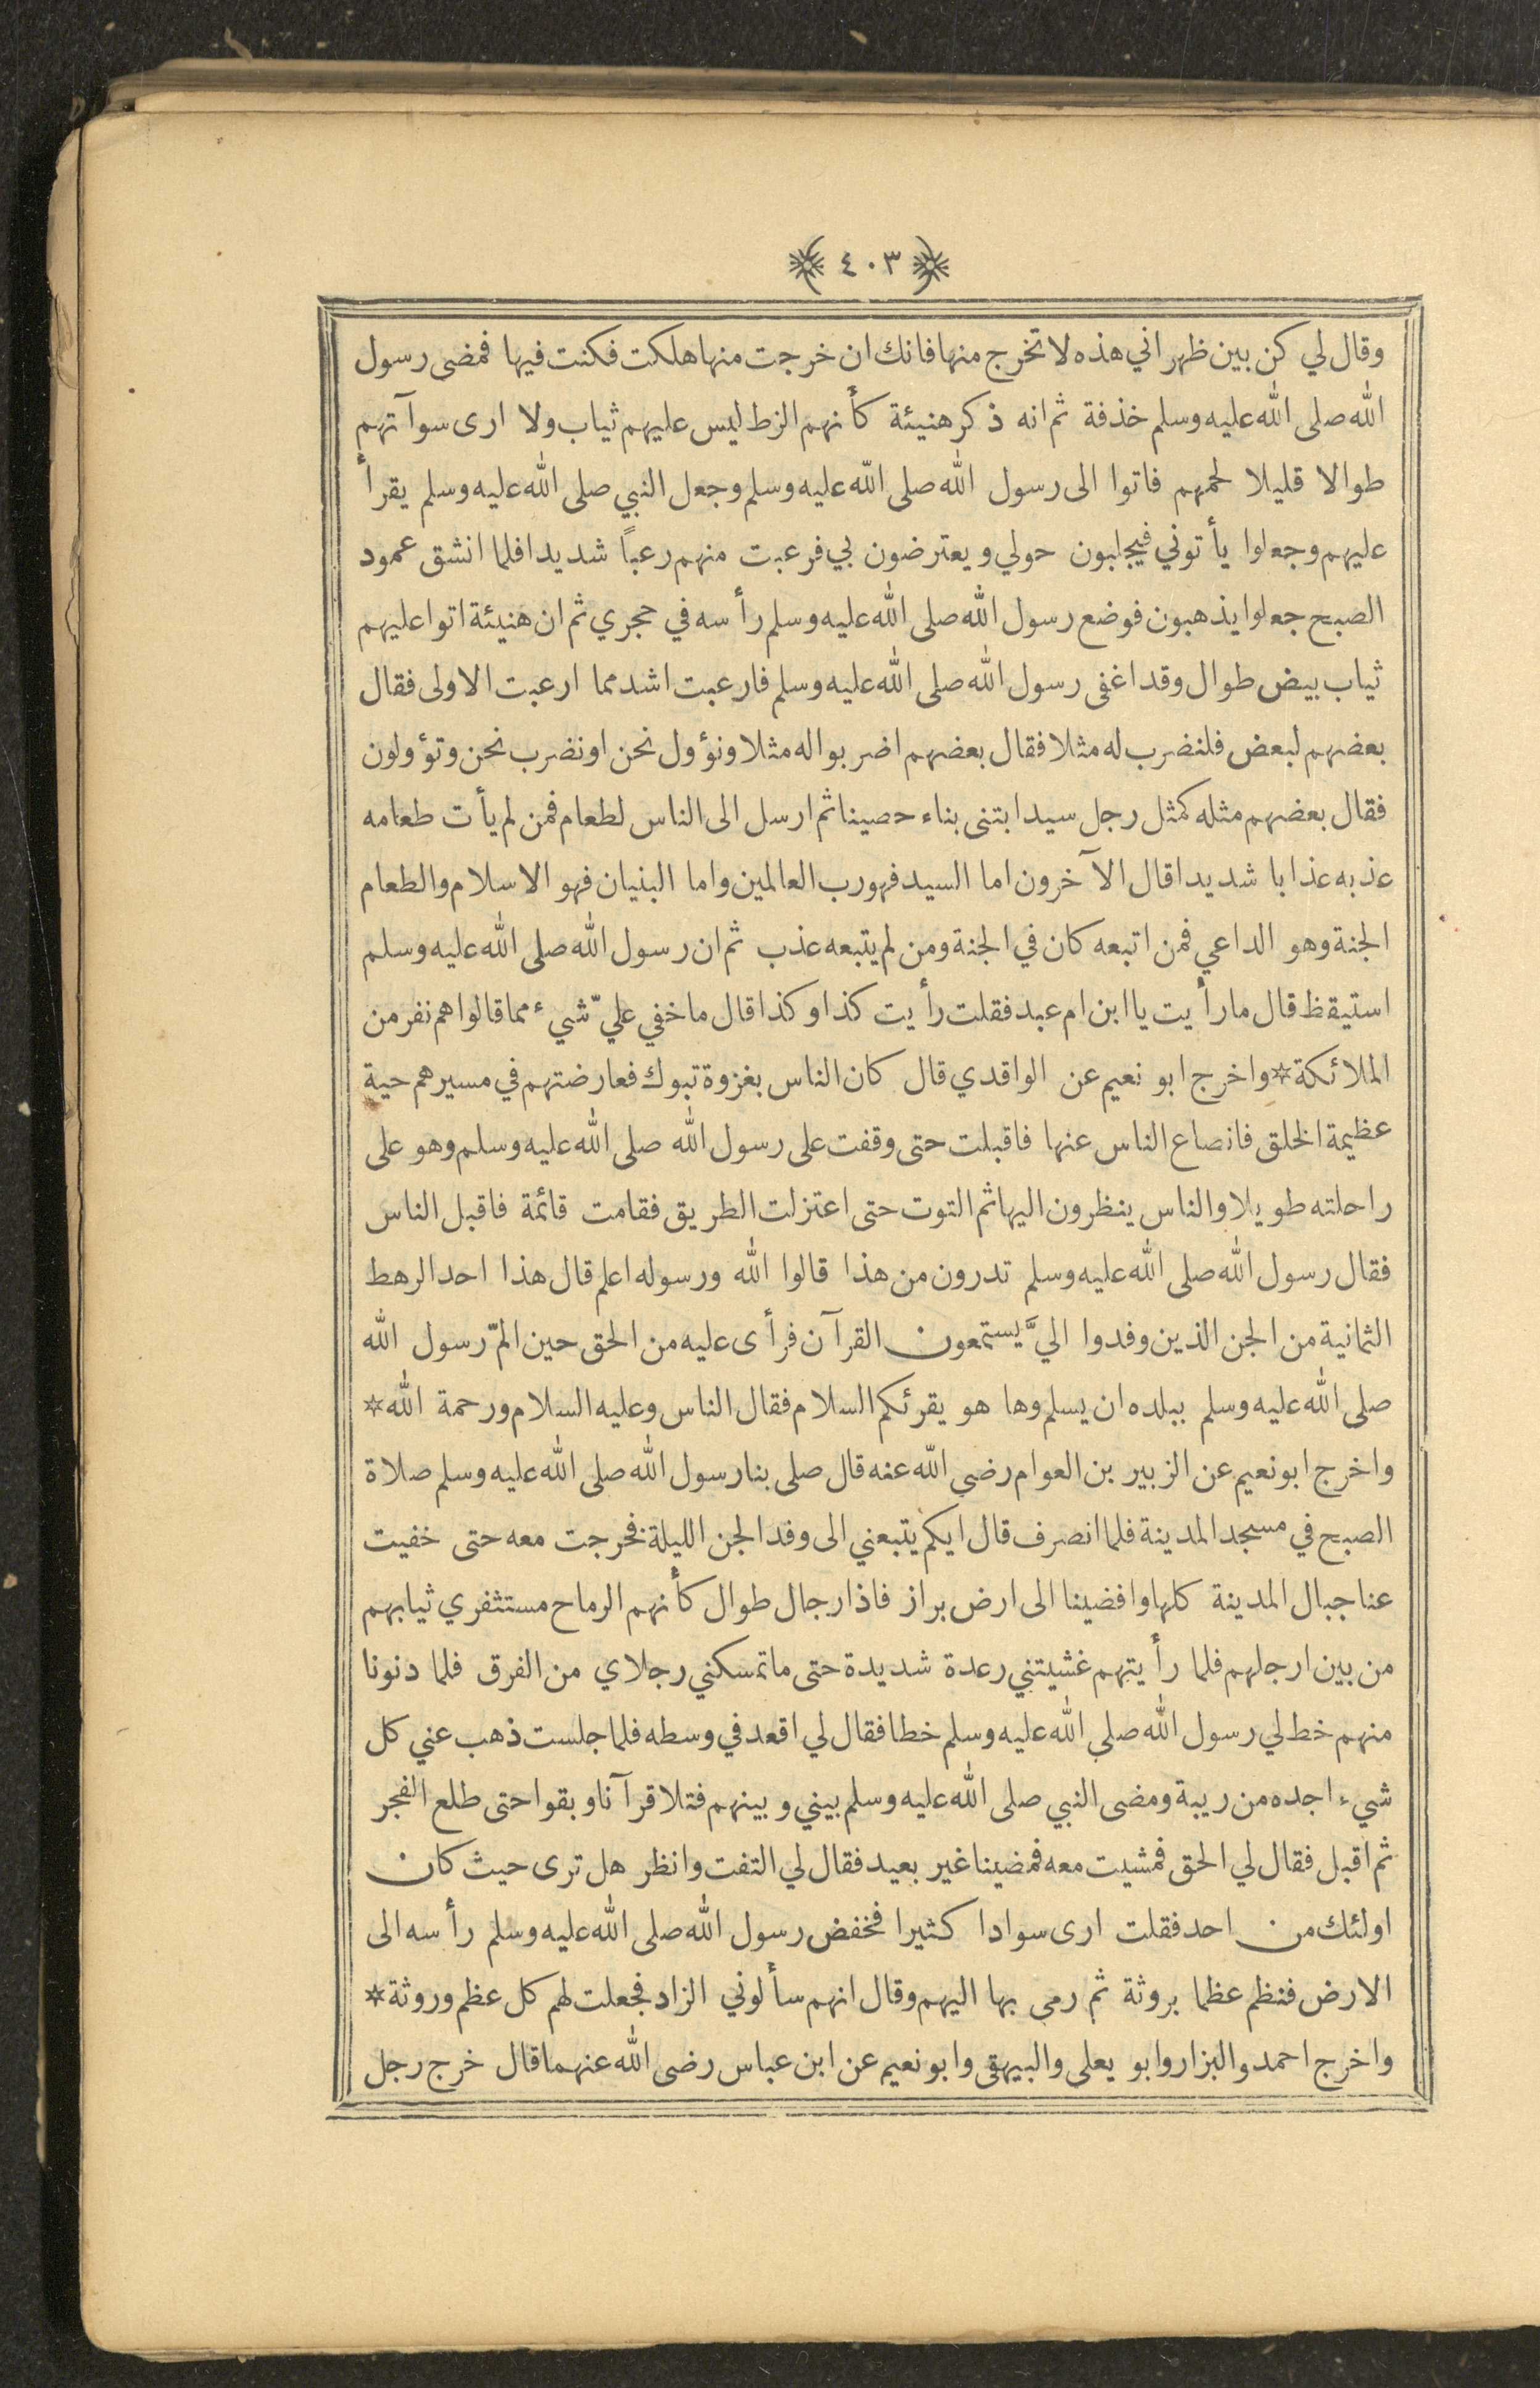 ٤٠٣
وقال لي كن بين ظهراني هذه لا تخرج منها فانك ان خرجت منها هلكت فكنت فيها فمضى رسول
الله صلى الله عليه وسلم خذفة ثم انه ذكر هنيئة كأنهم الزط ليس عليهم ثياب ولا ارى سوآتهم
طوالا قليلا لحمهم فاتوا الى رسول الله صلى الله عليه وسلم وجعل النبي صلى الله عليه وسلم يقرأ
عليهم وجعلوا يأتوني فيجلبون حولي ويعترضون بي فرعبت منهم رعباً شديدا فلما انشق عمود
الصبح جعلوا يذهبون فوضع رسول الله صلى الله عليه وسلم رأسه في حجري ثم ان هنيئة اتوا عليهم
ثياب بيض طوال وقد اغفى رسول الله صلى الله عليه وسلم فارعبت اشد مما ارعبت الاولى فقال
بعضهم لبعض فلنضرب له مثلا فقال بعضهم اضربوا له مثلا ونؤول نحن او نضرب نحن وتؤولون
فقال بعضهم مثله كمثل رجل سيد ابتنى بناء حصينا ثم ارسل الى الناس لطعام فمن لم يأت طعامه
عذبه عذابا شديدا قال الآخرون اما السيد فهو رب العالمين واما البنيان فهو الاسلام والطعام
الجنة وهو الداعي فمن اتبعه كان في الجنة ومن لم يتبعه عذب ثم ان رسول الله صلى الله عليه وسلم
استيقظ قال ما رأيت يا ابن ام عبد فقلت رأيت كذا وكذا قال ما خفي عليّ شيء مما قالوا هم نفر من
الملائكة * واخرج ابو نعيم عن الواقدي قال كان الناس بغزوة تبوك فعارضتهم في مسيرهم حية
عظيمة الخلق فانصاع الناس عنها فاقبلت حتى وقفت على رسول الله صلى الله عليه وسلم وهو على
راحلته طويلا والناس ينظرون اليها ثم التوت حتى اعتزلت الطريق فقامت قائمة فاقبل الناس
فقال رسول الله صلى الله عليه وسلم تدرون من هذا قالوا الله ورسوله اعلم قال هذا احد الرهط
الثمانية من الجن الذين وفدوا اليَّ يستمعون القرآن فرأى عليه من الحق حين المّ رسول الله
صلى الله عليه وسلم ببلده ان يسلم وها هو يقرئكم السلام فقال الناس وعليه السلام ورحمة الله *
واخرج ابو نعيم عن الزبير بن العوام رضي الله عنه قال صلى بنا رسول الله صلى الله عليه وسلم صلاة
الصبح في مسجد المدينة فلما انصرف قال ايكم يتبعني الى وفد الجن الليلة فخرجت معه حتى خفيت
عنا جبال المدينة كلها وافضينا الى ارض براز فاذا رجال طوال كأنهم الرماح مستثفري ثيابهم
من بين ارجلهم فلما رأيتهم غشيتني رعدة شديدة حتى ما تمسكني رجلاي من الفرق فلما دنونا
منهم خط لي رسول الله صلى الله عليه وسلم خطا فقال لي اقعد في وسطه فلما جلست ذهب عني كل
شيء اجده من ريبة ومضى النبي صلى الله عليه وسلم بيني وبينهم فتلا قرآنا وبقوا حتى طلع الفجر
ثم اقبل فقال لي الحق فمشيت معه فمضينا غير بعيد فقال لي التفت وانظر هل ترى حيث كان
اولئك من احد فقلت ارى سوادا كثيرا فخفض رسول الله صلى الله عليه وسلم رأسه الى
الارض فنظم عظما بروثة ثم رمى بها اليهم وقال انهم سألوني الزاد فجعلت لهم كل عظم وروثة *
واخرج احمد والبزار وابو يعلى والبيهقى وابو نعيم عن ابن عباس رضى الله عنهما قال خرج رجل